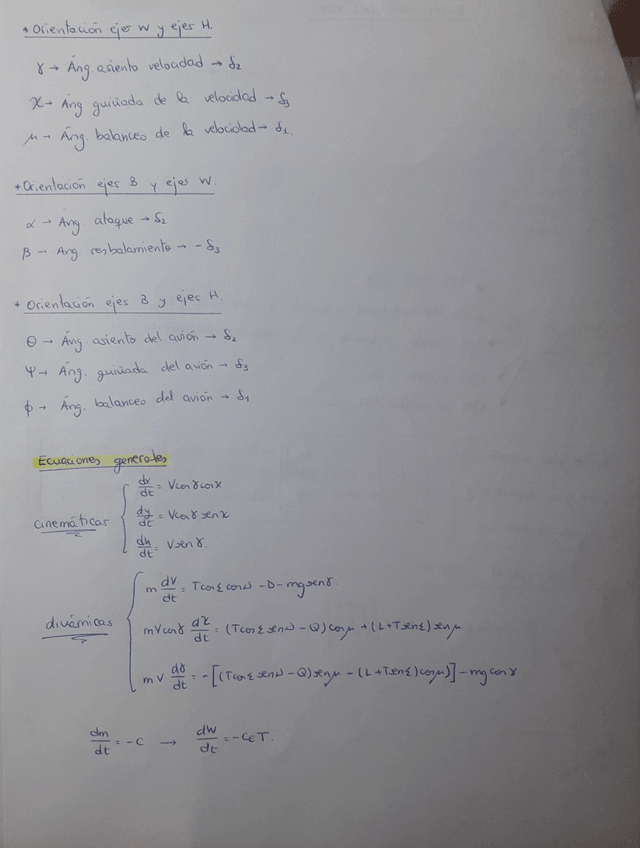 * Orientación ejes W y ejes H.
γ → Áng. asiento velocidad → δ2
χ → Áng guiñada de la velocidad → δ3
μ → Áng. balanceo de la velocidad → δ1
* Orientación ejes B y ejes W.
α → Áng. ataque → δ2
β → Ang. resbalamiento → - δ3
* Orientación ejes B y ejes H.
θ → Áng. asiento del avión → δ2
Ψ → Áng. guiñada del avión → δ3
ϕ → Áng. balanceo del avión → δ1
Ecuaciones generales
dx/dt = V cos γ cos χ
cinemáticas dy/dt = V cos γ sen χ
dh/dt = V sen γ.
m dV/dt = T cos ε cos ν - D - mg sen γ.
dinámicas mV cos γ dχ/dt = (T cos ε sen ν - Q) cos μ + (L + T sen ε) sen μ
mV dγ/dt = -[(T cos ε sen ν - Q) sen μ - (L + T sen ε) cos μ)] - mg cos γ
dm/dt = -C → dW/dt = -CE T.